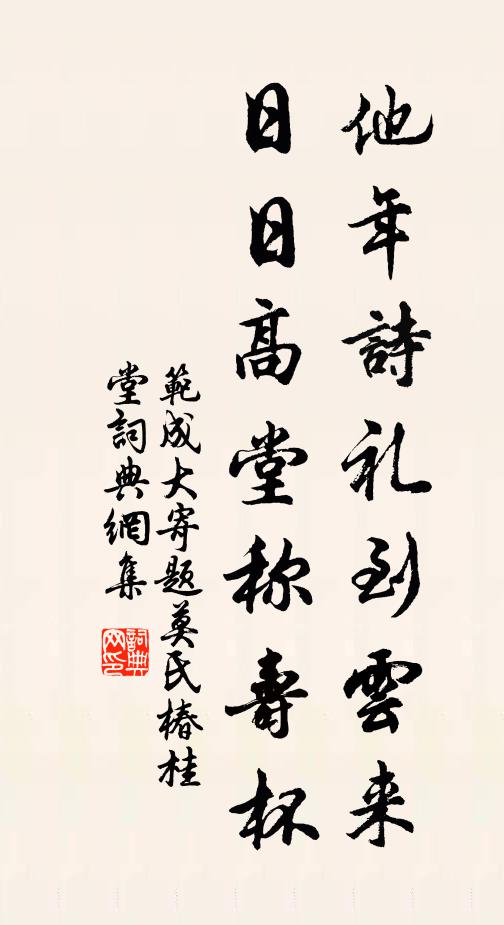 他年詩礼到雲来
日日高堂称壽杯
範成大寄題莫氏椿桂
堂詞典網集
詞典网印